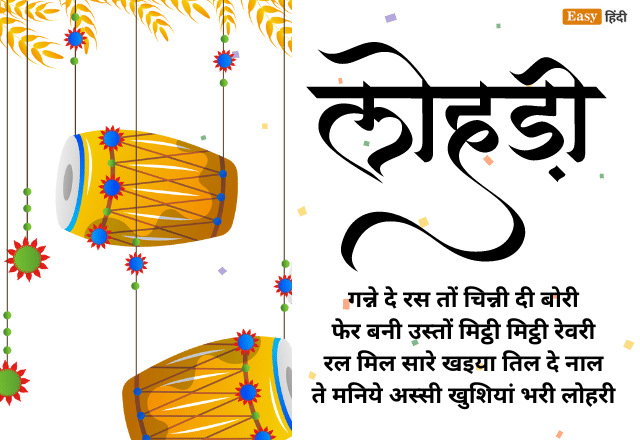 Easy हिंदी
लोहड़ी
गन्ने दे रस तों चिन्नी दी बोरी
फेर बनी उस्तों मिट्ठी मिट्ठी रेवरी
रल मिल सारे खइया तिल दे नाल
ते मनिये अस्सी खुशियां भरी लोहरी